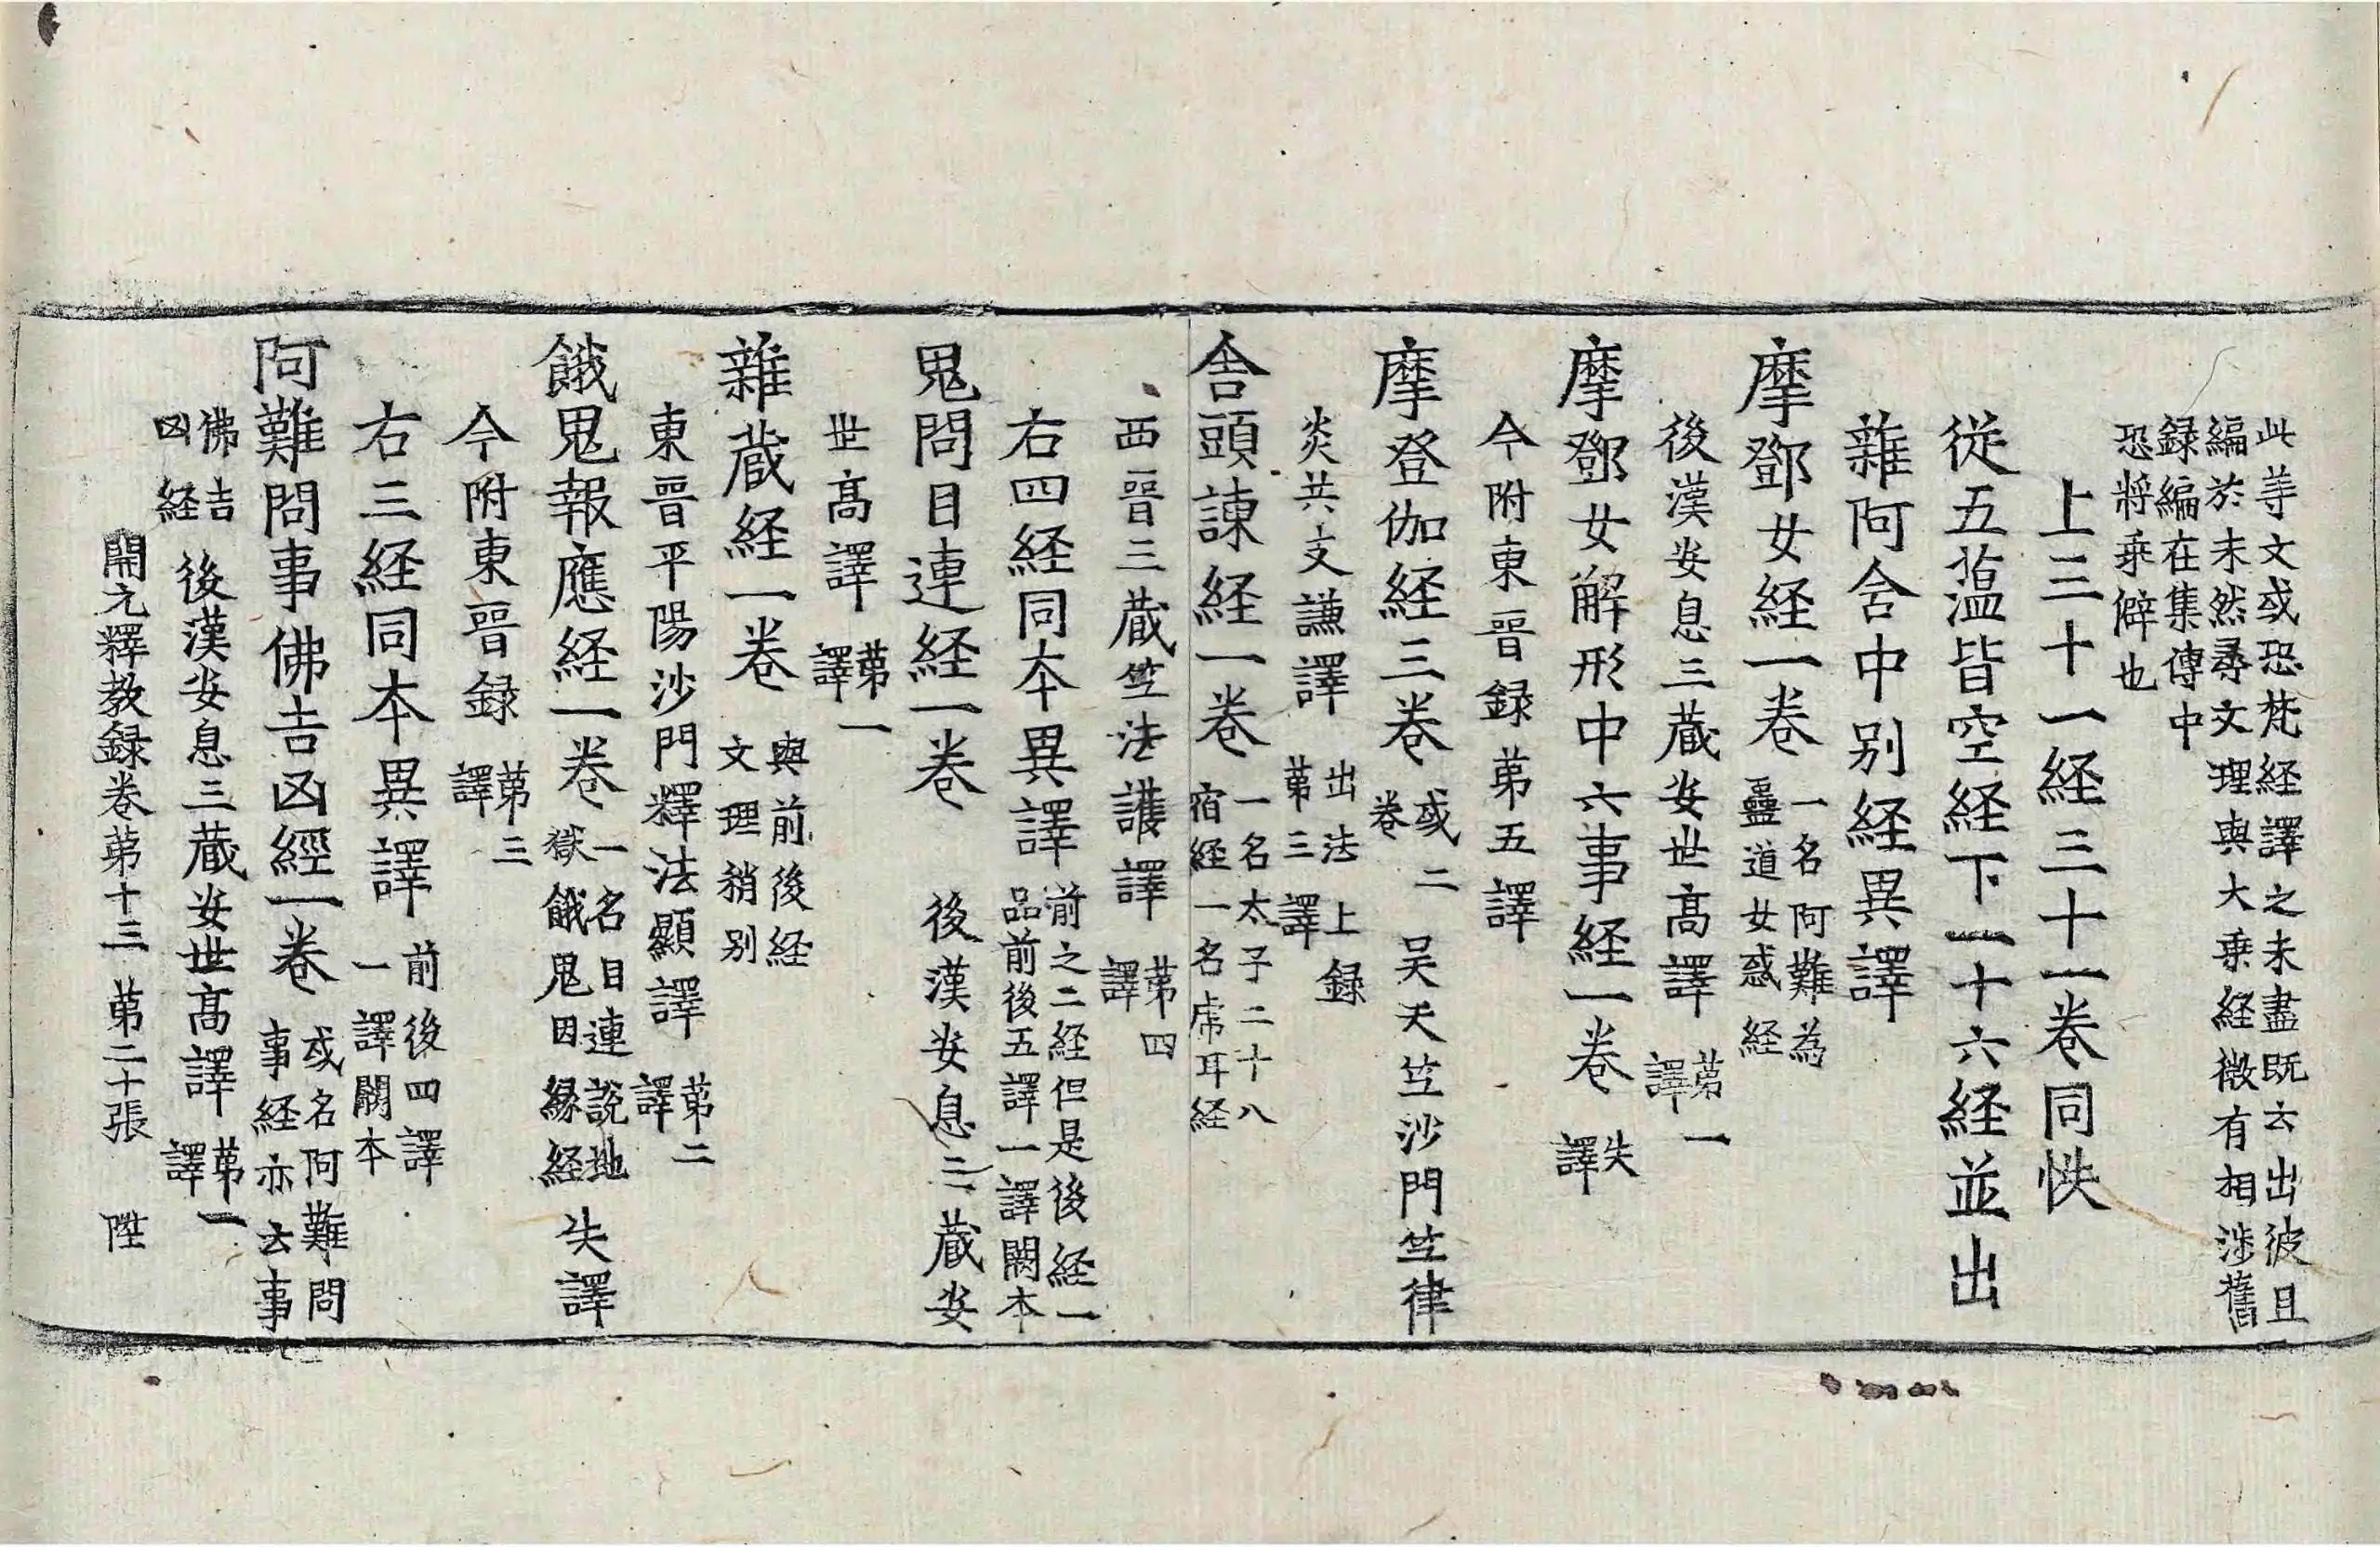 此等文或恐梵経譯之未盡既云出彼且
編於末然尋文理與大乗経微有相渉舊
録編在集傳中
恐將乗僻也
上三十一経三十一巻同帙
従五蕰皆空経下一十六経並出
雜阿含中別経異譯
摩鄧女経一巻 一名阿難為
蠱道女惑経
後漢安息三蔵安世髙譯 苐一
譯
摩鄧女解形中六事経一巻 失
譯
今附東晉録苐五譯
摩登伽経三巻 或二
巻 吴天竺沙門竺律
炎共支謙譯 出法上録
苐三譯
舎頭諫経一巻 一名太子二十八
宿経一名虎耳経
西晉三蔵竺法護譯 苐四
譯
右四経同本異譯 前之二経但是後経一
品前後五譯一譯闕本
鬼問目連経一巻 後漢安息三蔵安
世髙譯 苐一
譯
雜蔵経一巻 與前後経
文理稍別
東晉平陽沙門釋法顯譯 苐二
譯
餓鬼報應経一巻 一名目連說地
獄餓鬼因縁経 失譯
今附東晉録 苐三
譯
右三経同本異譯 前後四譯
一譯闕本
阿難問事佛吉凶經一巻 或名阿難問
事経亦云事
佛吉
凶経 後漢安息三蔵安世髙譯 苐一
譯
開元釋教録巻苐十三 苐二十張 陞